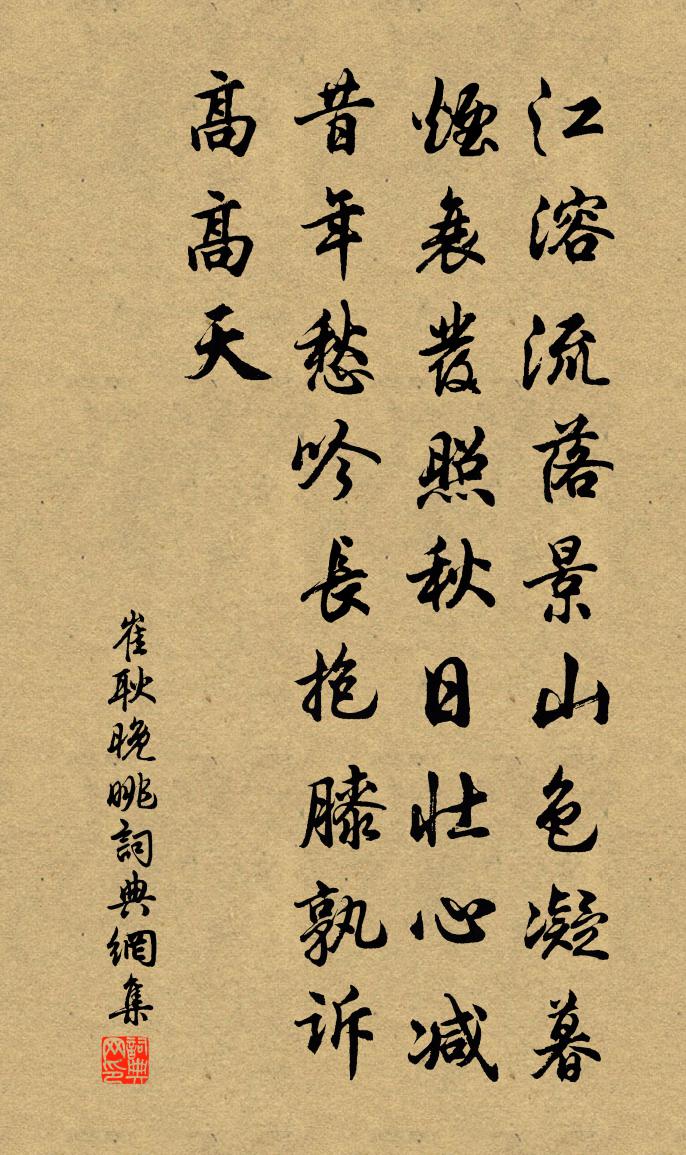 江溶流落景山色凝暮
煙衰發照秋日壯心減
昔年愁吟長抱膝孰訴
高高天
崔耿晚眺詞典網集
詞典网印